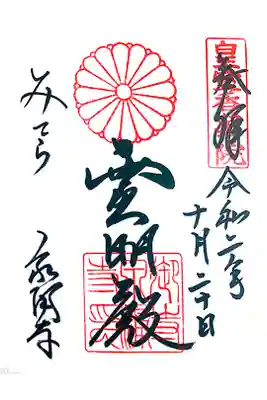 奉拝
令和二年
十月二十日
霊明殿
みてら
泉涌寺